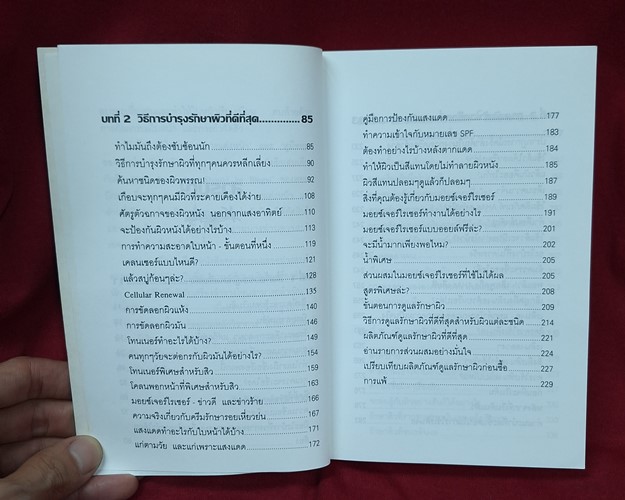 บทที่ 2 วิธีการบำรุงรักษาผิวที่ดีที่สุด..............85
ทำไมมันถึงต้องซับซ้อนนัก..............85
วิธีการบำรุงรักษาผิวที่ทุกๆคนควรหลีกเลี่ยง..............90
ค้นหาชนิดของผิวพรรณ!..............92
เกือบจะทุกๆคนมีผิวที่ระคายเคืองได้ง่าย..............108
ศัตรูตัวฉกาจของผิวหนัง นอกจากแสงอาทิตย์..............110
จะป้องกันผิวหนังได้อย่างไรบ้าง..............113
การทำความสะอาดใบหน้า - ขั้นตอนที่หนึ่ง..............119
เคลนเซอร์แบบไหนดี?..............121
แล้วสบู่ก้อนๆล่ะ?..............128
Cellular Renewal..............135
การขัดลอกผิวแห้ง..............140
การขัดลอกผิวมัน..............146
โทนเนอร์ทำอะไรได้บ้าง?..............149
คนทุกๆวัยจะต่อกรกับผิวมันได้อย่างไร?..............154
โทนเนอร์พิเศษสำหรับสิว..............159
โคลนพอกหน้าที่พิเศษสำหรับสิว..............163
มอยซ์เจอร์ไรเซอร์ - ข่าวดี และข่าวร้าย..............166
ความจริงเกี่ยวกับครีมรักษารอยเหี่ยวย่น..............167
แสงแดดทำอะไรกับใบหน้าได้บ้าง..............171
แก่ตามวัย และแก่เพราะแสงแดด..............172
คู่มือการป้องกันแสงแดด..............177
ทำความเข้าใจกับหมายเลข SPF..............183
ต้องทำอย่างไรบ้างหลังตากแดด..............184
ทำให้ผิวเป็นสีแทนโดยไม่ทำลายผิวหนัง..............185
ผิวสีแทนปลอมๆดูแล้วก็ปลอมๆ..............187
สิ่งที่คุณต้องรู้เกี่ยวกับมอยซ์เจอร์ไรเซอร์..............189
มอยซ์เจอร์ไรเซอร์ทำงานได้อย่างไร..............191
มอยซ์เจอร์ไรเซอร์แบบออยล์ฟรีล่ะ?..............201
จะมีน้ำมากเพียงพอไหม?..............202
น้ำพิเศษ..............205
ส่วนผสมในมอยซ์เจอร์ไรเซอร์ที่ใช้ไม่ได้ผล..............205
สูตรพิเศษล่ะ?..............208
ขั้นตอนการดูแลรักษาผิว..............209
วิธีการดูแลรักษาผิวที่ดีที่สุดสำหรับผิวแต่ละชนิด..............214
ผลิตภัณฑ์ดูแลรักษาผิวที่ดีที่สุด..............221
อ่านรายการส่วนผสมอย่างมั่นใจ..............224
เปรียบเทียบผลิตภัณฑ์ดูแลรักษาผิวก่อนซื้อ..............227
การแพ้..............229